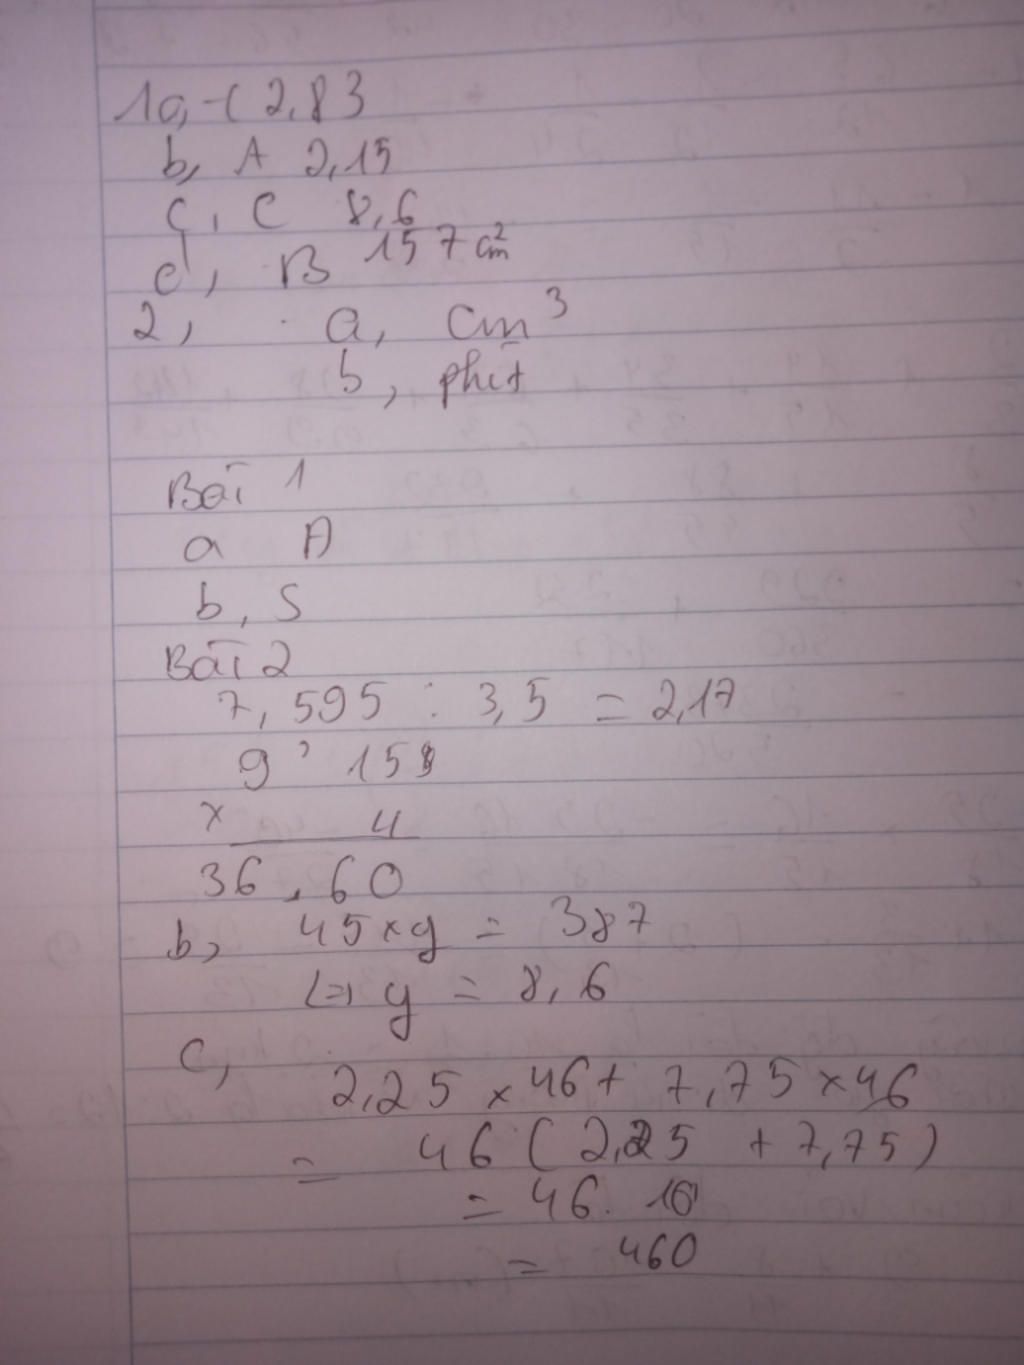 1a, -C 2,83
b, A 2,15
c, C 8,6
d, B 157 cm²
2, a, cm³
b, phút
Bài 1
a Đ
b, S
Bài 2
7,595 : 3,5 = 2,17
9,15
x 4
36,60
b, 45 x y = 387
(=) y = 8,6
c,
2,25 x 46 + 7,75 x 46
= 46 (2,25 + 7,75)
= 46. 10
= 460